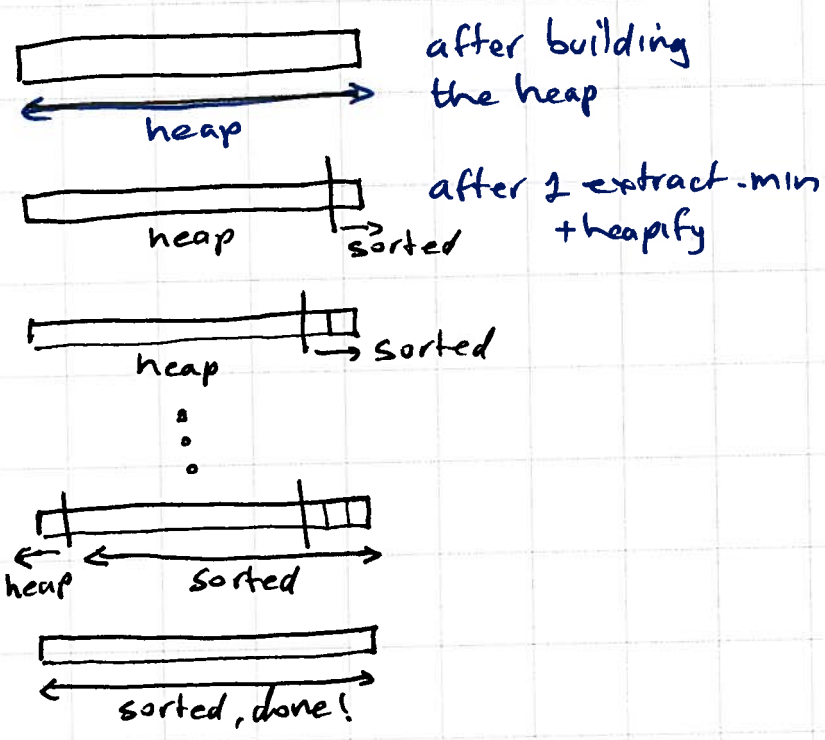 after building
the heap
heap
after 1 extract-min
+heapify
heap
sorted
heap
sorted
heap
sorted
sorted, done!